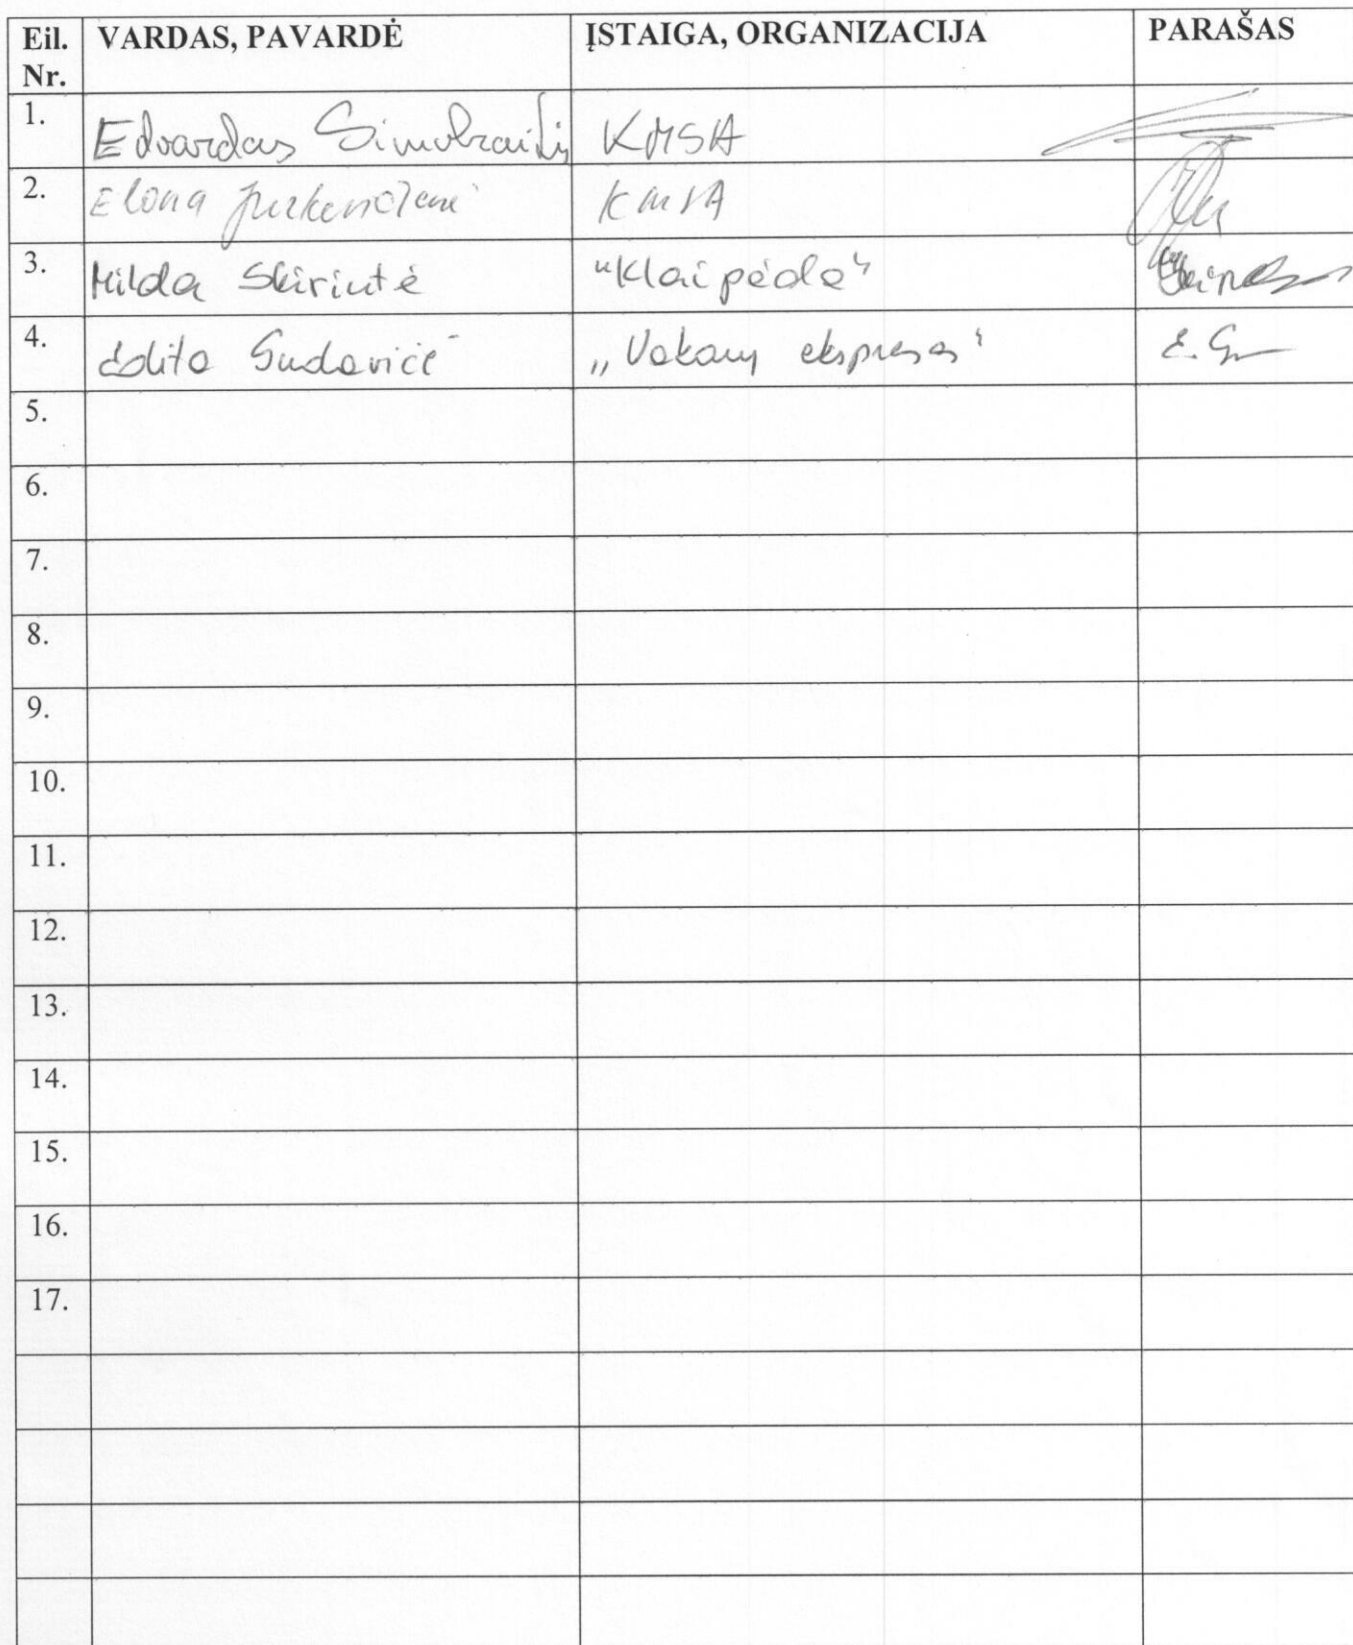 Eil. Nr. VARDAS, PAVARDĖ ĮSTAIGA, ORGANIZACIJA PARAŠAS
1. Edvardas Simokaitis KMSA
2. Elona Jurkevičienė KMSA
3. Milda Skiriutė "Klaipėda"
4. Edita Gudavičė „Vakarų ekspresas“
5.
6.
7.
8.
9.
10.
11.
12.
13.
14.
15.
16.
17.